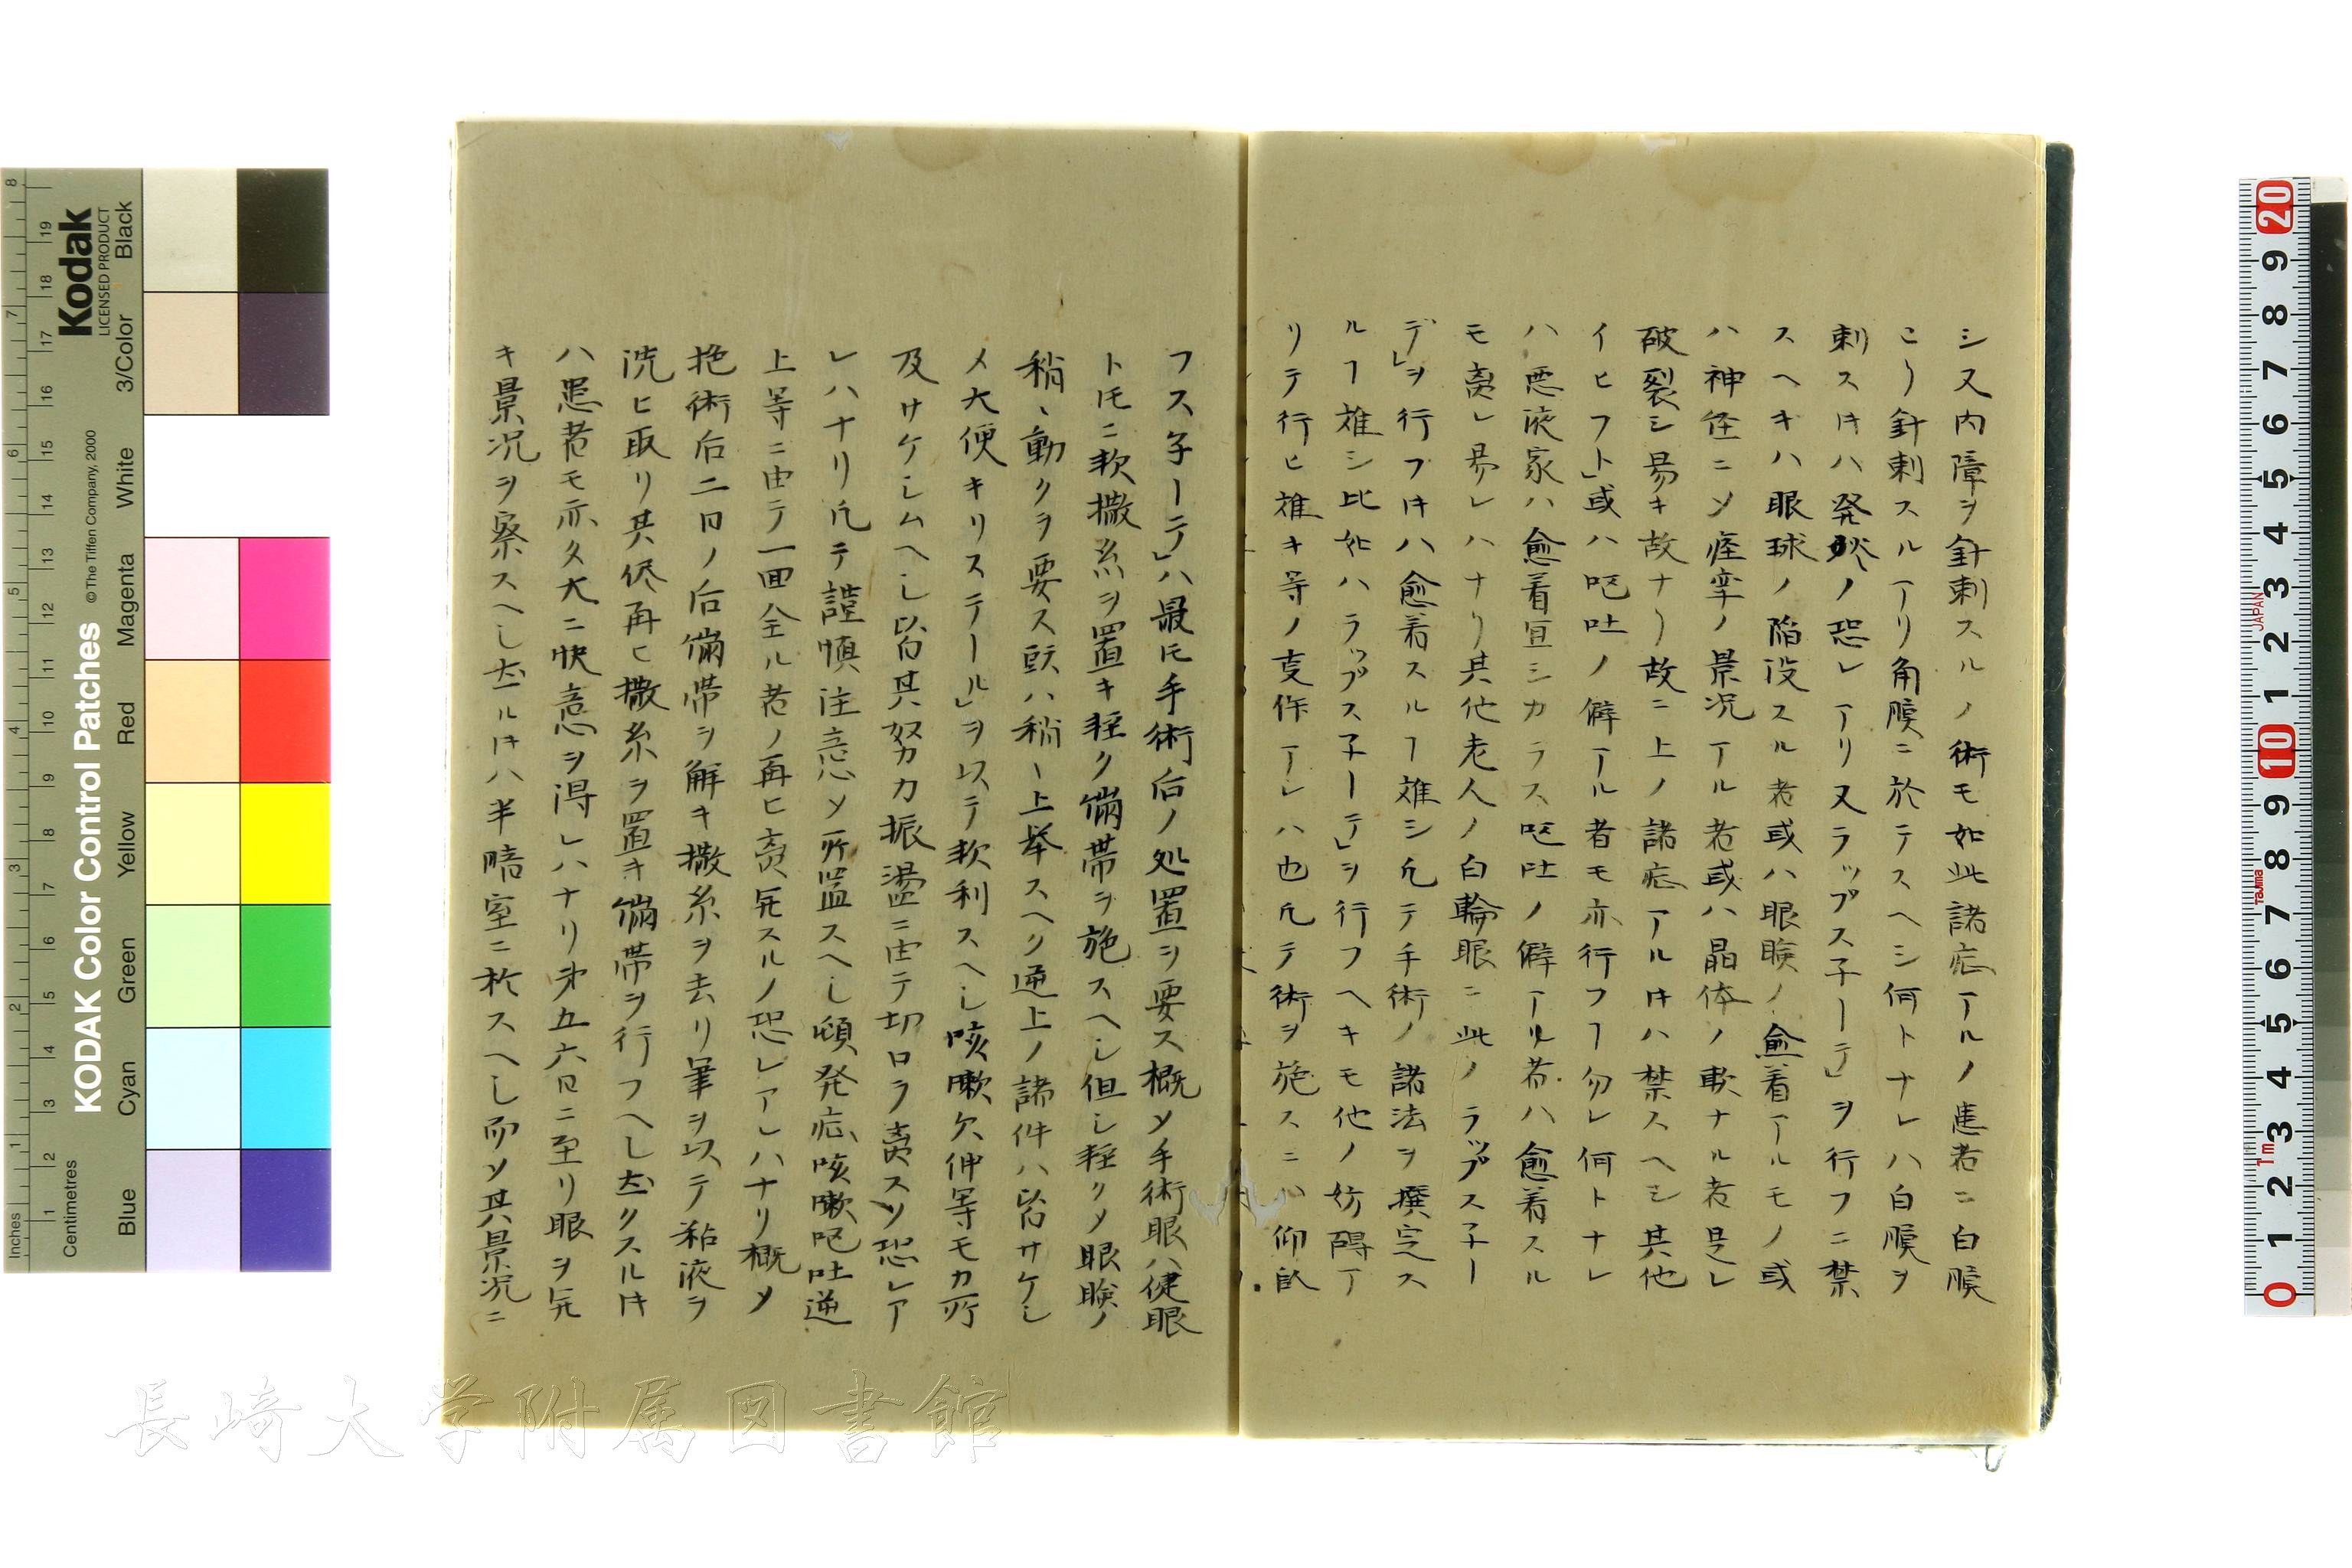 シ又内障ヲ針刺スルノ術モ如此諸症アルノ患者ニ白膜
ヨリ針刺スルヿアリ角膜ニ於テスヘシ何トナレハ白膜ヲ
刺スキハ発焮ノ恐レアリ又ラップス子ーテ」ヲ行フニ禁
スヘキハ眼球ノ陥没スル者或ハ眼瞼ノ愈着アルモノ或
ハ神経ニメ痙挛ノ景况アル者或ハ晶体ノ軟ナル者是レ
破裂シ易キ故ナリ故ニ上ノ諸症アルキハ禁スヘシ其他
イヒフト」或ハ呕吐ノ僻アル者モ亦行フヿ勿レ何トナレ
ハ悪液家ハ愈着宜シカラス呕吐ノ僻アル者ハ愈着スル
モ賣レ易レハナリ其他老人ノ白輪眼ニ此ノラップス子ー
デ」ヲ行フキハ愈着スルヿ難シ凢テ手術ノ諸法ヲ撰定ス
ルヿ雖シ比如ハラップス子ーテ」ヲ行フヘキモ他ノ妨碍ア
リテ行ヒ雖キ等ノ支作アレハ也凢テ術ヲ施スニハ仰臥
フス子ーテ」ハ最モ手術后ノ処置ヲ要ス概メ手術眼ハ健眼
トモニ軟撒糸ヲ置キ軽ク繃帯ヲ施スヘシ但シ軽クメ眼瞼ノ
稍、動クヲ要ス頭ハ稍ー上挙スヘク逆上ノ諸件ハ皆サケシ
メ大便キリステール」ヲ以テ軟利スヘシ咳嗽欠伸等モカ所
及サケシムヘシ皆其努力振盪ニ由テ切口ヲ賣スノ恐レア
レハナリ凢テ謹慎注意メ所置スヘシ頓発症咳嗽呕吐逆
上等ニ由テ一回全ル者ノ再ヒ賣開スルノ恐レアレハナリ概メ
施術后二日ノ后繃帯ヲ解キ撒糸ヲ去リ筆ヲ以テ粘液ヲ
洗ヒ取リ其侭再ヒ撒糸ヲ置キ繃帯ヲ行フヘシ如此クスルキ
ハ患者モ亦タ大ニ快意ヲ得レハナリ第五六日ニ至リ眼ヲ開
キ景况ヲ察スヘシ如此ルキハ半暗室ニ於スヘシ而メ其景况ニ
長崎大学附属図書館
KODAK Color Control Patches
© The Tiffen Company, 2000
Kodak
LICENSED PRODUCT
Inches
Centimetres
Blue
Cyan
Green
Yellow
Red
Magenta
White
3/Color
Black
JAPAN
Tajima